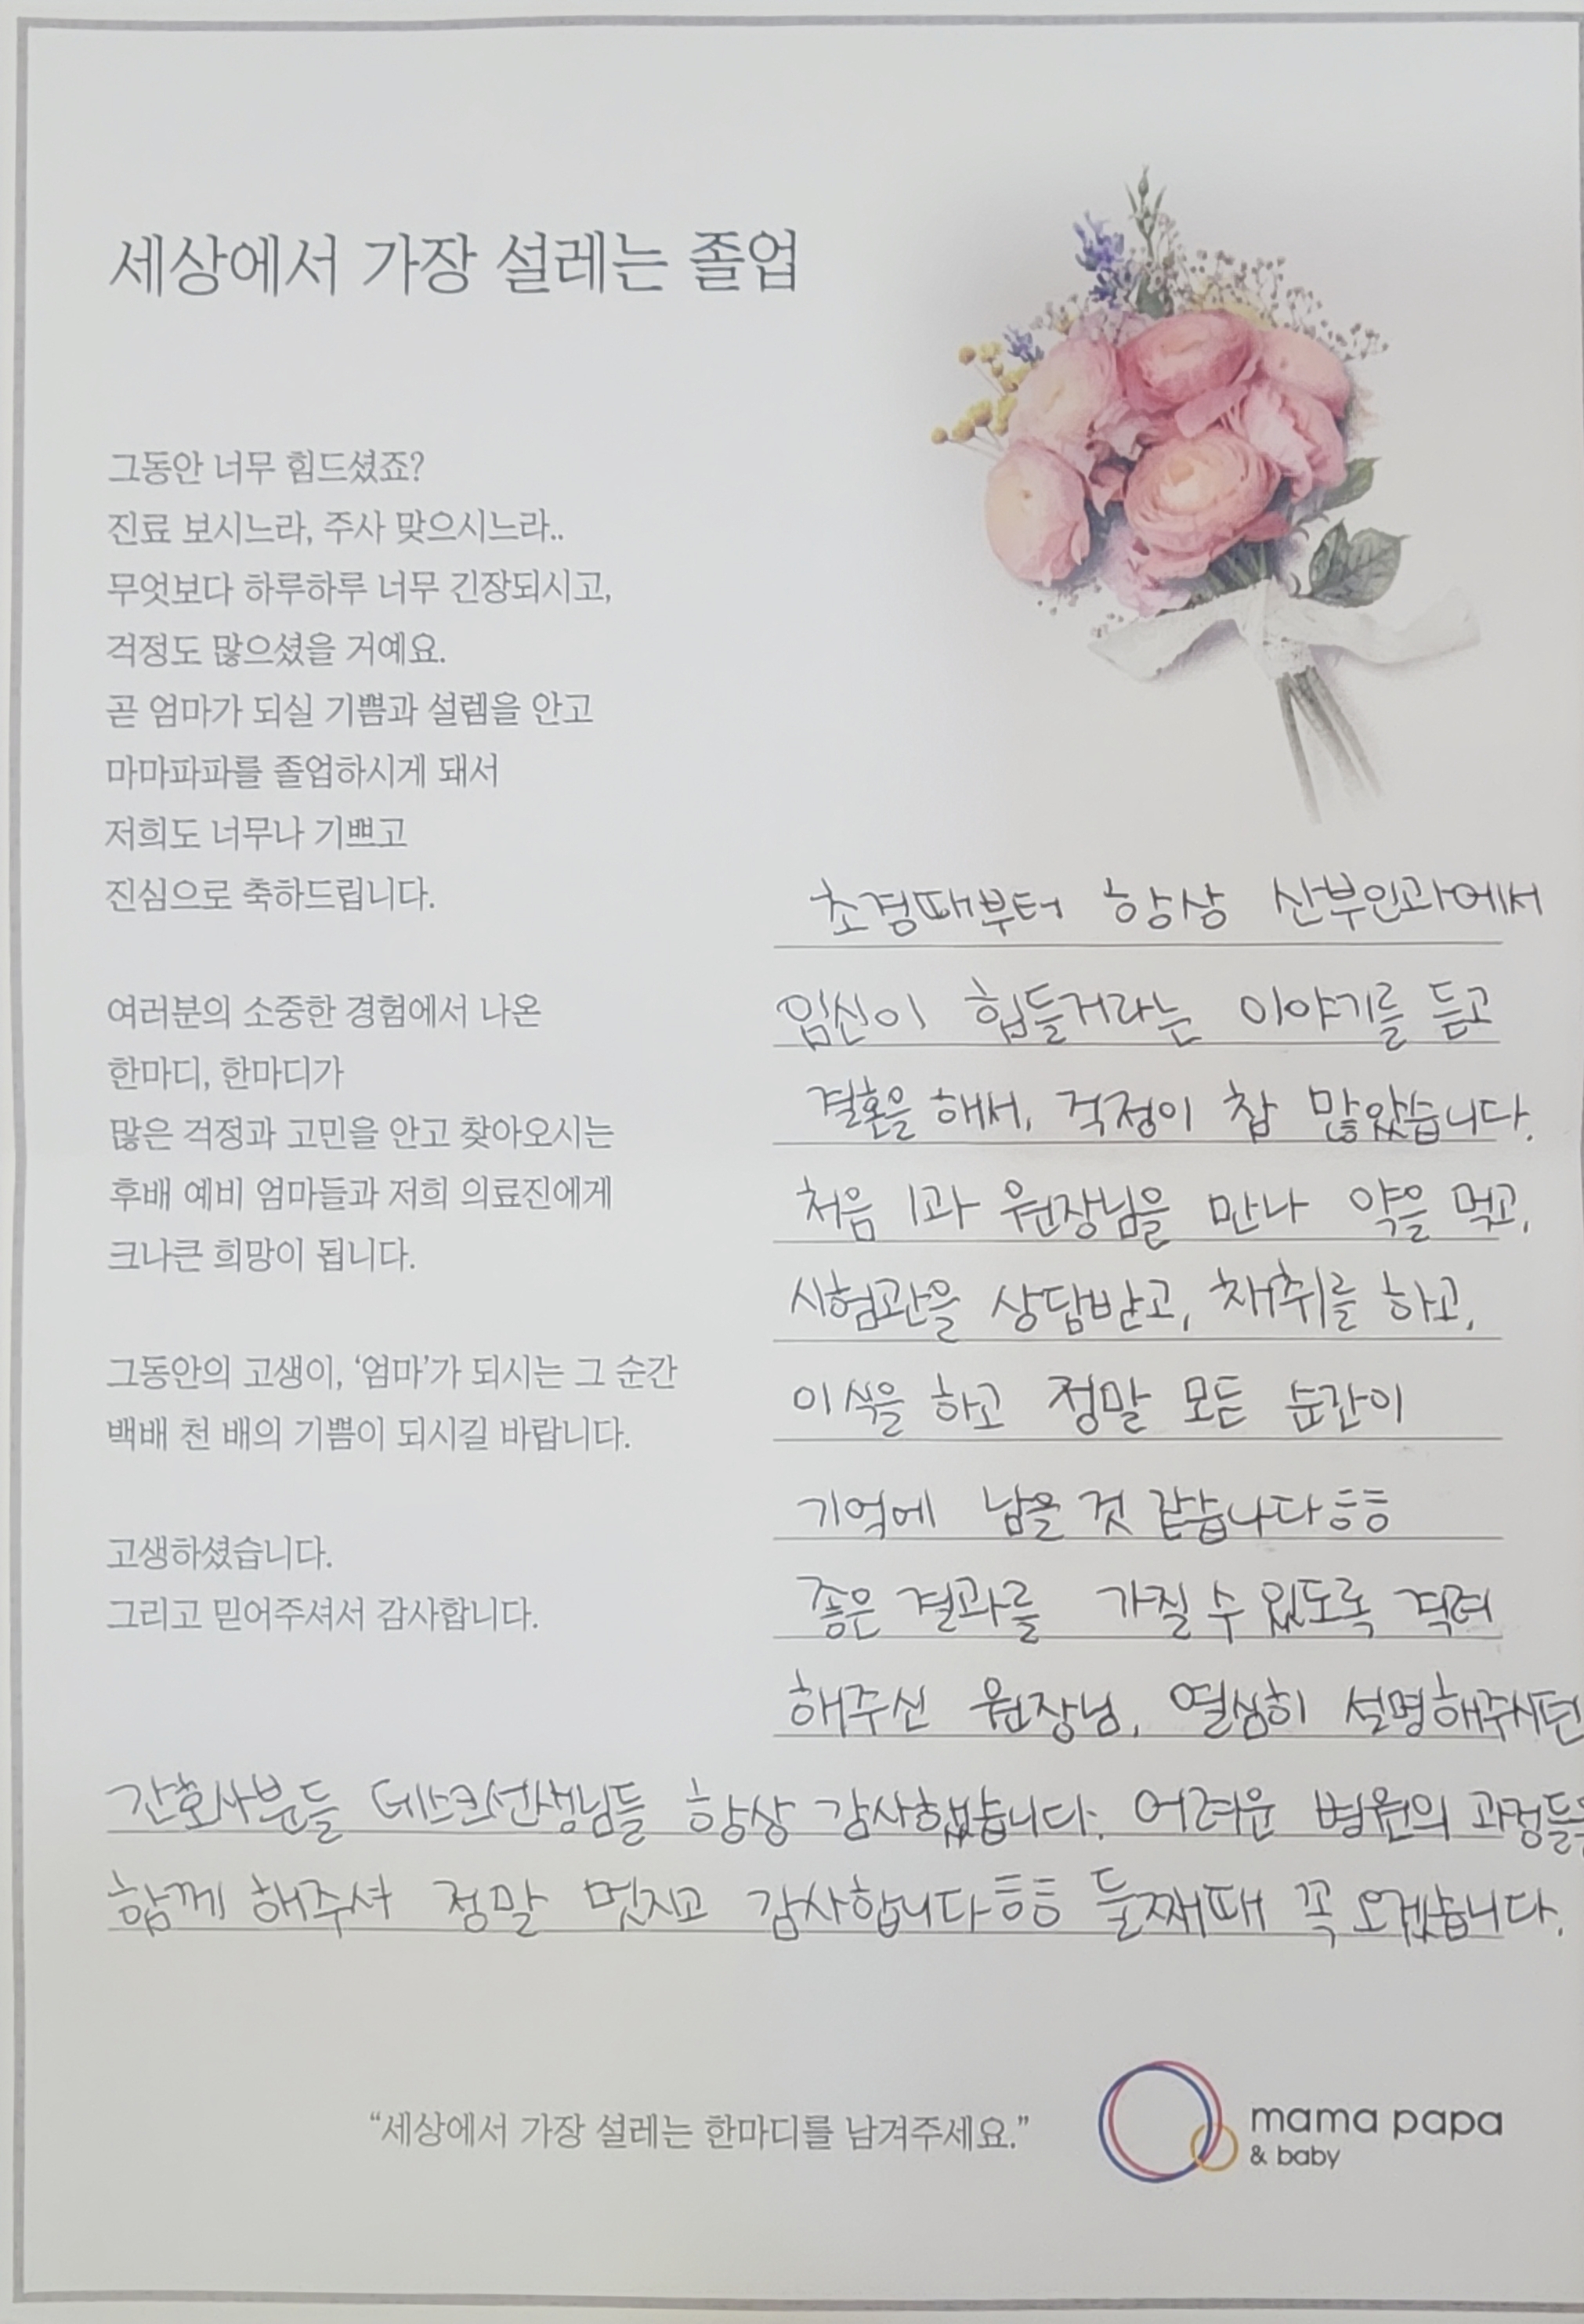 세상에서 가장 설레는 졸업
그동안 너무 힘드셨죠?
진료 보시느라, 주사 맞으시느라..
무엇보다 하루하루 너무 긴장되시고,
걱정도 많으셨을 거예요.
곧 엄마가 되실 기쁨과 설렘을 안고
마마파파를 졸업하시게 돼서
저희도 너무나 기쁘고
진심으로 축하드립니다.
여러분의 소중한 경험에서 나온
한마디, 한마디가
많은 걱정과 고민을 안고 찾아오시는
후배 예비 엄마들과 저희 의료진에게
크나큰 희망이 됩니다.
그동안의 고생이, ‘엄마’가 되시는 그 순간
백배 천 배의 기쁨이 되시길 바랍니다.
고생하셨습니다.
그리고 믿어주셔서 감사합니다.
초경때부터 항상 산부인과에서
임신이 힘들거라는 이야기를 듣고
결혼을 해서, 걱정이 참 많았습니다.
처음 1과 원장님을 만나 약을 먹고,
시험관을 상담받고, 채취를 하고,
이식을 하고 정말 모든 순간이
기억에 남을 것 같습니다ㅎㅎ
좋은 결과를 가질 수 있도록 격려
해주신 원장님, 열심히 설명해주시던
간호사분들 데스크선생님들 항상 감사했습니다. 어려운 병원의 과정들을
함께 해주셔 정말 멋지고 감사합니다ㅎㅎ 둘째때 꼭 오겠습니다.
“세상에서 가장 설레는 한마디를 남겨주세요.”
mama papa
& baby